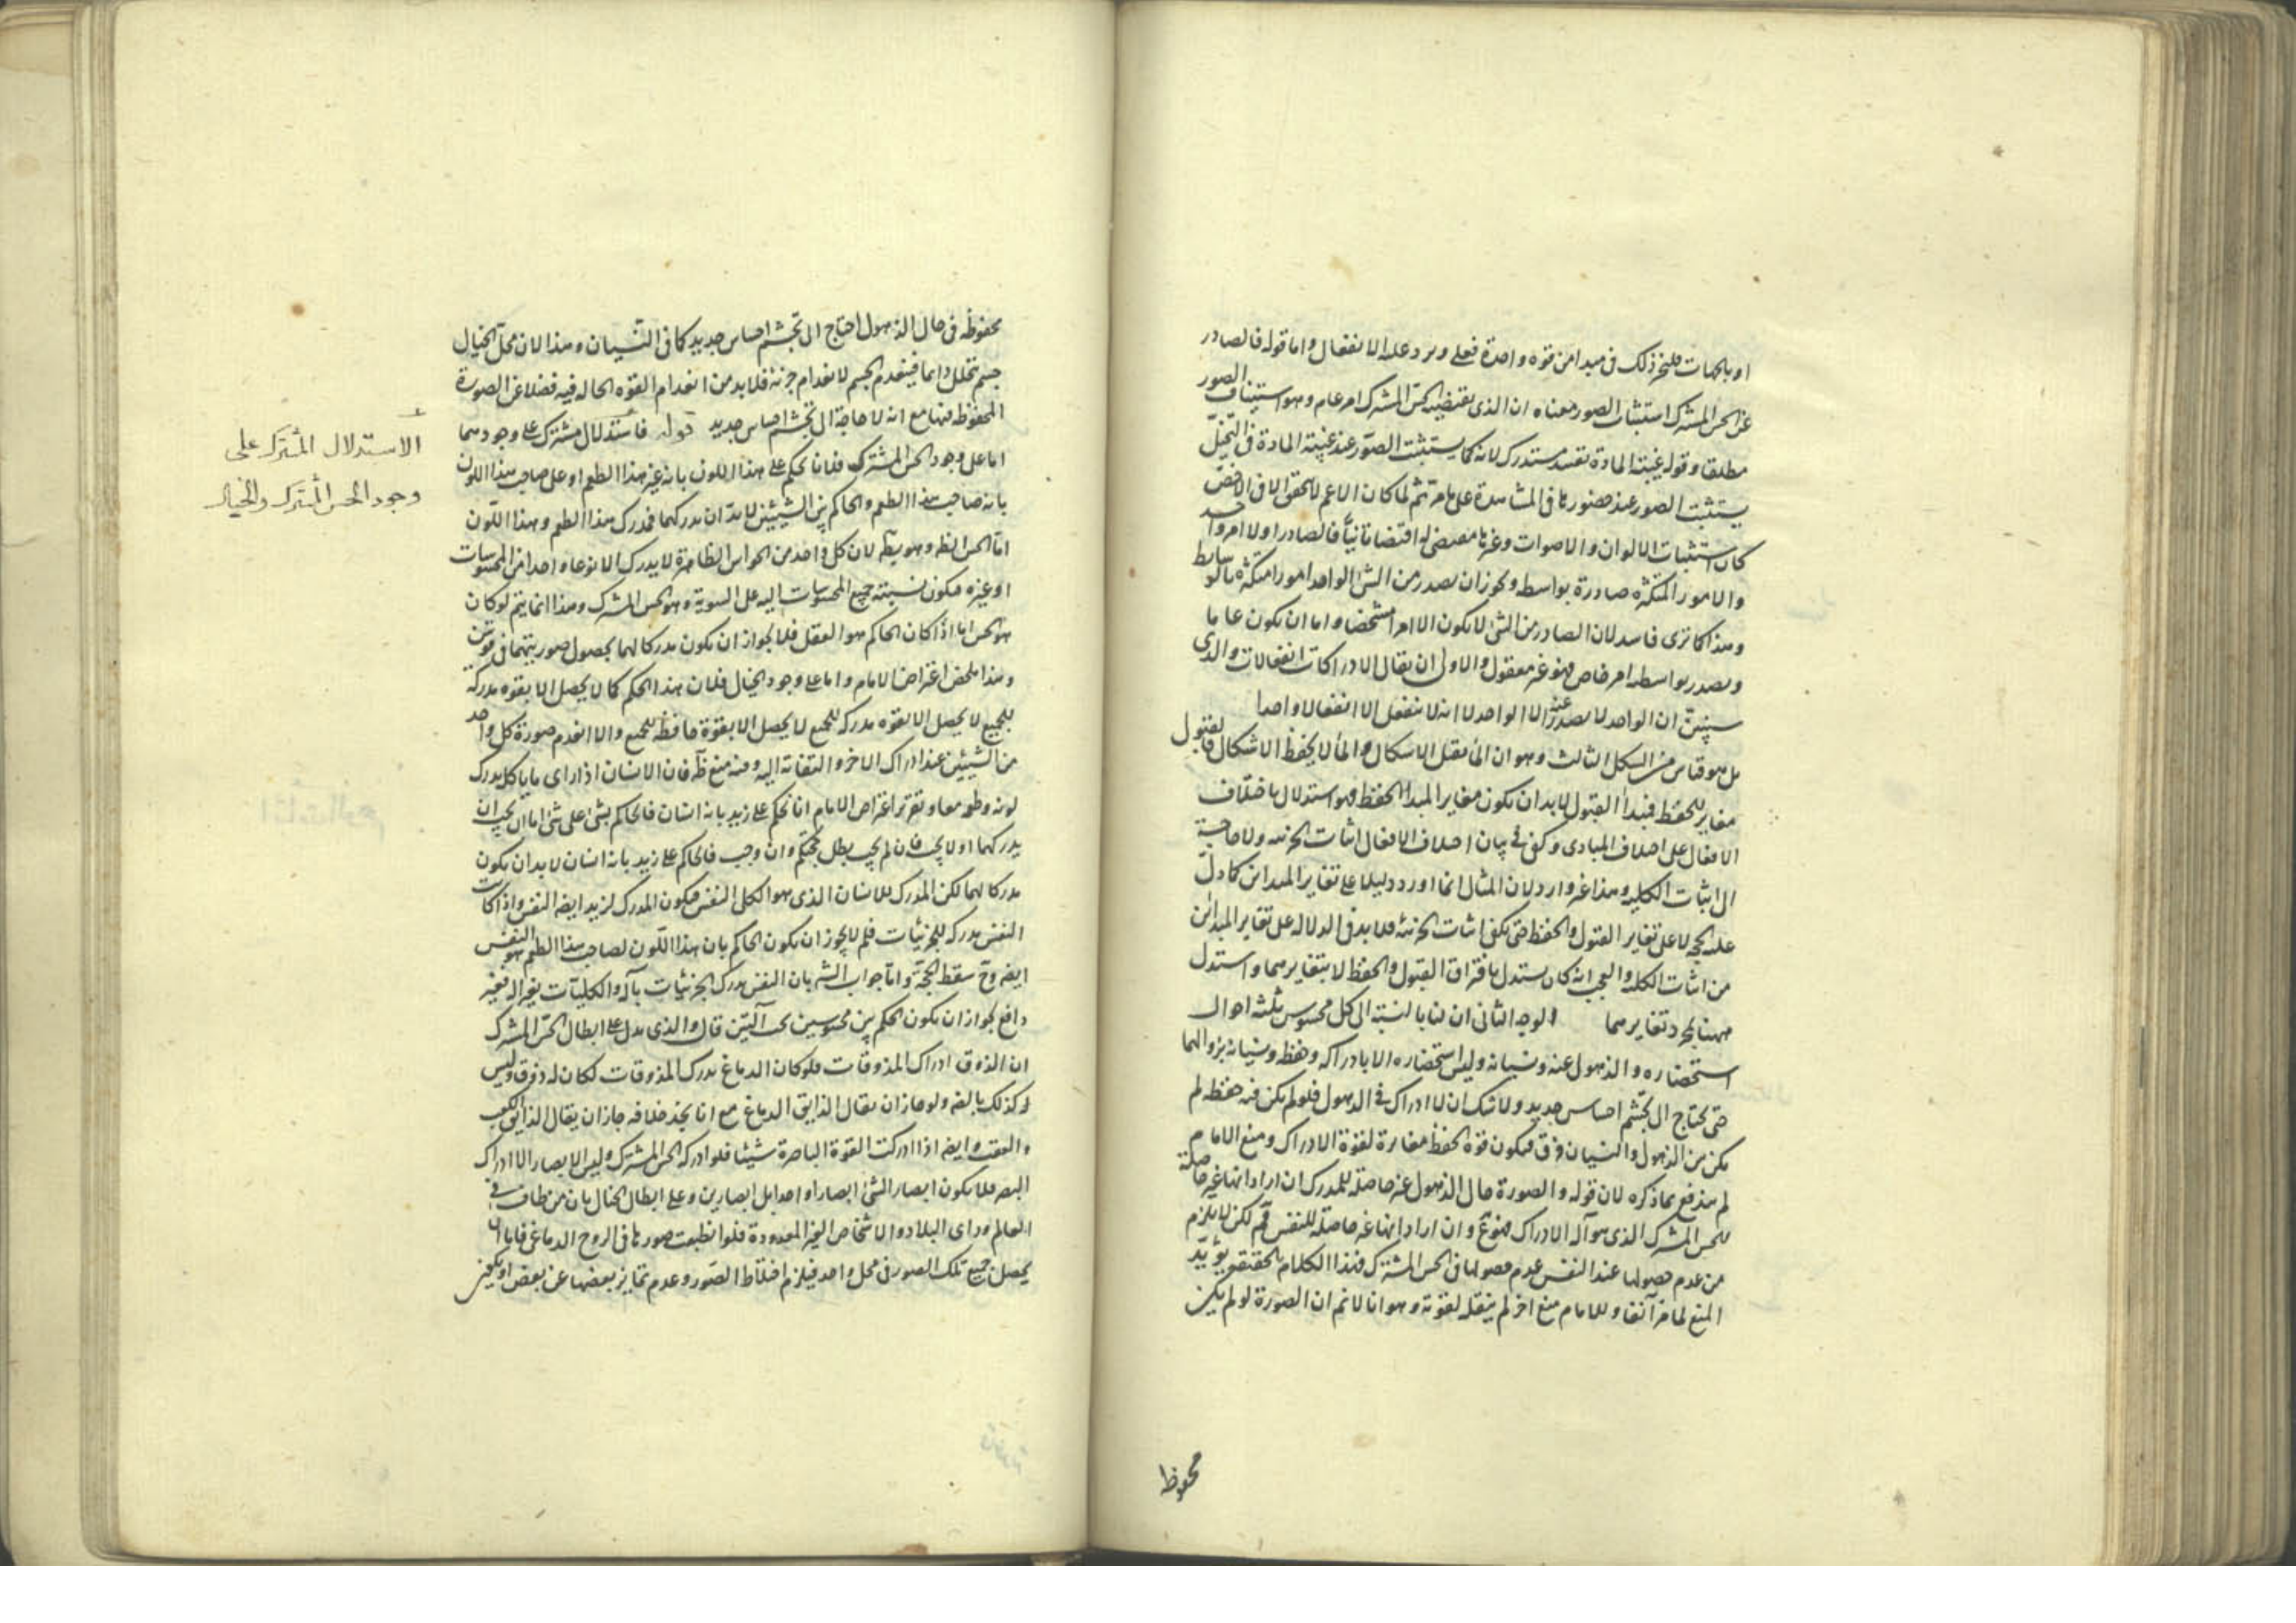 او بالجهات فليجز ذلك فى مبدا من قوه واحدة فعلى ويرد عليه الانفعال واما قوله فالصادر
عن الحس المشترك استثبات الصور معناه ان الذى يقتضيه الحس المشترك امر عام وهو استثبات الصور
مطلقا وقوله غيبة المادة تقييد مستدرك لانه كما يستثبت الصور عند غيبة المادة فى التخيل
يستثبت الصور عند حضورها فى المشاهدة على ما مر ثم لما كان الاعم لا يتحقق الا فى الاخص
كان استثبات الالوان والاصوات وغيرها مقتضى له اقتضاءً ثانيا فالصادر اولا امر واحد
والامور المتكثرة صادرة بواسطه ويجوز ان يصدر من الشئ الواحد امور متكثرة بالوسايط
وهذا كما ترى فاسد لان الصادر من الشئ لا يكون الا امرا مشخصا واما ان يكون عاما ما
ويصدر بواسطه امر خاص فهو غير معقول والاولى ان يقال الادراكات انفعالات والذى
سيتبين ان الواحد لا يصدر عنه الا الواحد لا انه لا ينفعل الا انفعالا واحدا
بل هو قياس من الشكل الثالث وهو ان الماء يقبل الاشكال والماء لا يحفظ الاشكال فالقبول
مغاير للحفظ فمبدأ القبول لابد ان يكون مغايرا لمبدا الحفظ فهو استدلال باختلاف
الافعال على اختلاف المبادى وكفى فى بيان اختلاف الافعال اثبات الجزئيه ولا حاجة
الى اثبات الكليه وهذا غير وارد لان المثال انما اورد دليلا على تغاير المبداين كما دل
عليه الحجه لا على تغاير القبول والحفظ حتى يكفى اثبات الجزئيه فلا بد فى الدلاله على تغاير المبدائن
من اثبات الكليه والعجب انه كان يستدل بافتراق القبول والحفظ لا بتغايرهما واستدل
ههنا بمجرد تغايرهما الوجه الثانى ان لنا بالنسبة الى كل محسوس ثلثه احوال
استحضاره والذهول عنه ونسيانه وليس استحضاره الا بادراكه وحفظه ونسيانه بزوالهما
حتى يحتاج الى تجشم احساس جديد ولا شك ان لا ادراك فى الذهول فلو لم يكن فيه حفظ لم
يكن بين الذهول والنسيان فرق فيكون قوة الحفظ مغايرة لقوة الادراك ومنع الامام
لم يندفع بما ذكره لان قوله والصورة حال الذهول غير حاصله للمدرك ان اراد انها غير حاصلة
للحس المشترك الذى هو آلة الادراك فممنوع وان اراد انها غير حاصله للنفس فمسلم لكن لا يلزم
من عدم حصولها عند النفس عدم حصولها فى الحس المشترك فهذا الكلام بالحقيقه يؤيد
المنع لما مر آنفا وللامام منع اخر لم ينقله لقوته وهو انا لانم ان الصورة لو لم يكن
محفوظه
محفوظه فى حال الذهول احتاج الى تجشم احساس جديد كما فى النسيان وهذا لان محل الخيال
جسم يتخلل دائما فينعدم الجسم لانعدام جزئه فلا بد من انعدام القوه الحاله فيه فضلا عن الصورة
المحفوظه فيها مع انه لا حاجة الى تجشم احساس جديد قوله فاستدلال مشترك على وجودهما
اما على وجود الحس المشترك فلانا نحكم على هذا اللون بانه غير هذا الطعم او على صاحب هذا اللون
بانه صاحب هذا الطعم والحاكم بين الشيئين لابد ان يدركهما فمدرك هذا الطعم وهذا اللون
اما الحس الظ وهو بط لان كل واحد من الحواس الظاهرة لا يدرك الا نوعا واحدا من المحسوسات
او غيره فيكون نسبته جميع المحسوسات اليه على السوية وهو الحس المشترك وهذا انما يتم لو كان
هو الحس اما اذا كان الحاكم هو العقل فلا لجواز ان يكون مدركا لهما بحصول صورتيهما فى قوتين
وهذا ملخص اعتراض الامام واما على وجود الخيال فلان هذا الحكم كما لا يحصل الا بقوه مدركة
للجميع لا يحصل الا بقوه مدركه للجميع لا يحصل الا بقوة حافظه للجميع والا انعدم صورة كل واحد
من الشيئين عند ادراك الاخر والتفاته اليه وفيه منع ظ فان الانسان اذا راى ما ياكل يدرك
لونه وطعمه معا وتقرير اعتراض الامام انا نحكم على زيد بانه انسان فالحاكم بشئ على شئ اما ان يجب ان
يدركهما او لا يجب فان لم يجب بطل حجتكم وان وجب فالحاكم على زيد بانه انسان لابد ان يكون
مدركا لهما لكن المدرك للانسان الذى هو الكلى النفس فيكون المدرك لزيد ايضه النفس واذا كانت
النفس مدركه للجزئيات فلم لا يجوز ان يكون الحاكم بان هذا اللون لصاحب هذا الطعم هو النفس
ايضه وح سقط الحجة واما جواب الشه بان النفس يدرك الجزئيات بآله والكليات بغير آله فغير
دافع لجواز ان يكون الحكم بين محسوسين بحسب آلتين قال والذى يدل على ابطال الحس المشترك
ان الذوق ادراك المذوقات فلو كان الدماغ يدرك المذوقات لكان له ذوق وليس
كذلك بالضه ولو جاز ان يقال الذايق الدماغ مع انا نجد خلافه جاز ان يقال الذايق الكعب
والعقب وايضه اذا ادركت القوة الباصرة شيئا فلو ادركه الحس المشترك وليس الابصار الا ادراك
البصر فلا يكون ابصار الشئ ابصارا واحدا بل ابصارين وعلى ابطال الخيال بان من طاف فى
العالم وراى البلاد والاشخاص الغير المعدودة فلو انطبعت صورها فى الروح الدماغى فاما ان
يحصل جميع تلك الصور فى محل واحد فيلزم اختلاط الصور وعدم تمايز بعضها عن بعض او يكون
الاستدلال المشترك على
وجود الحس المشترك والخيال